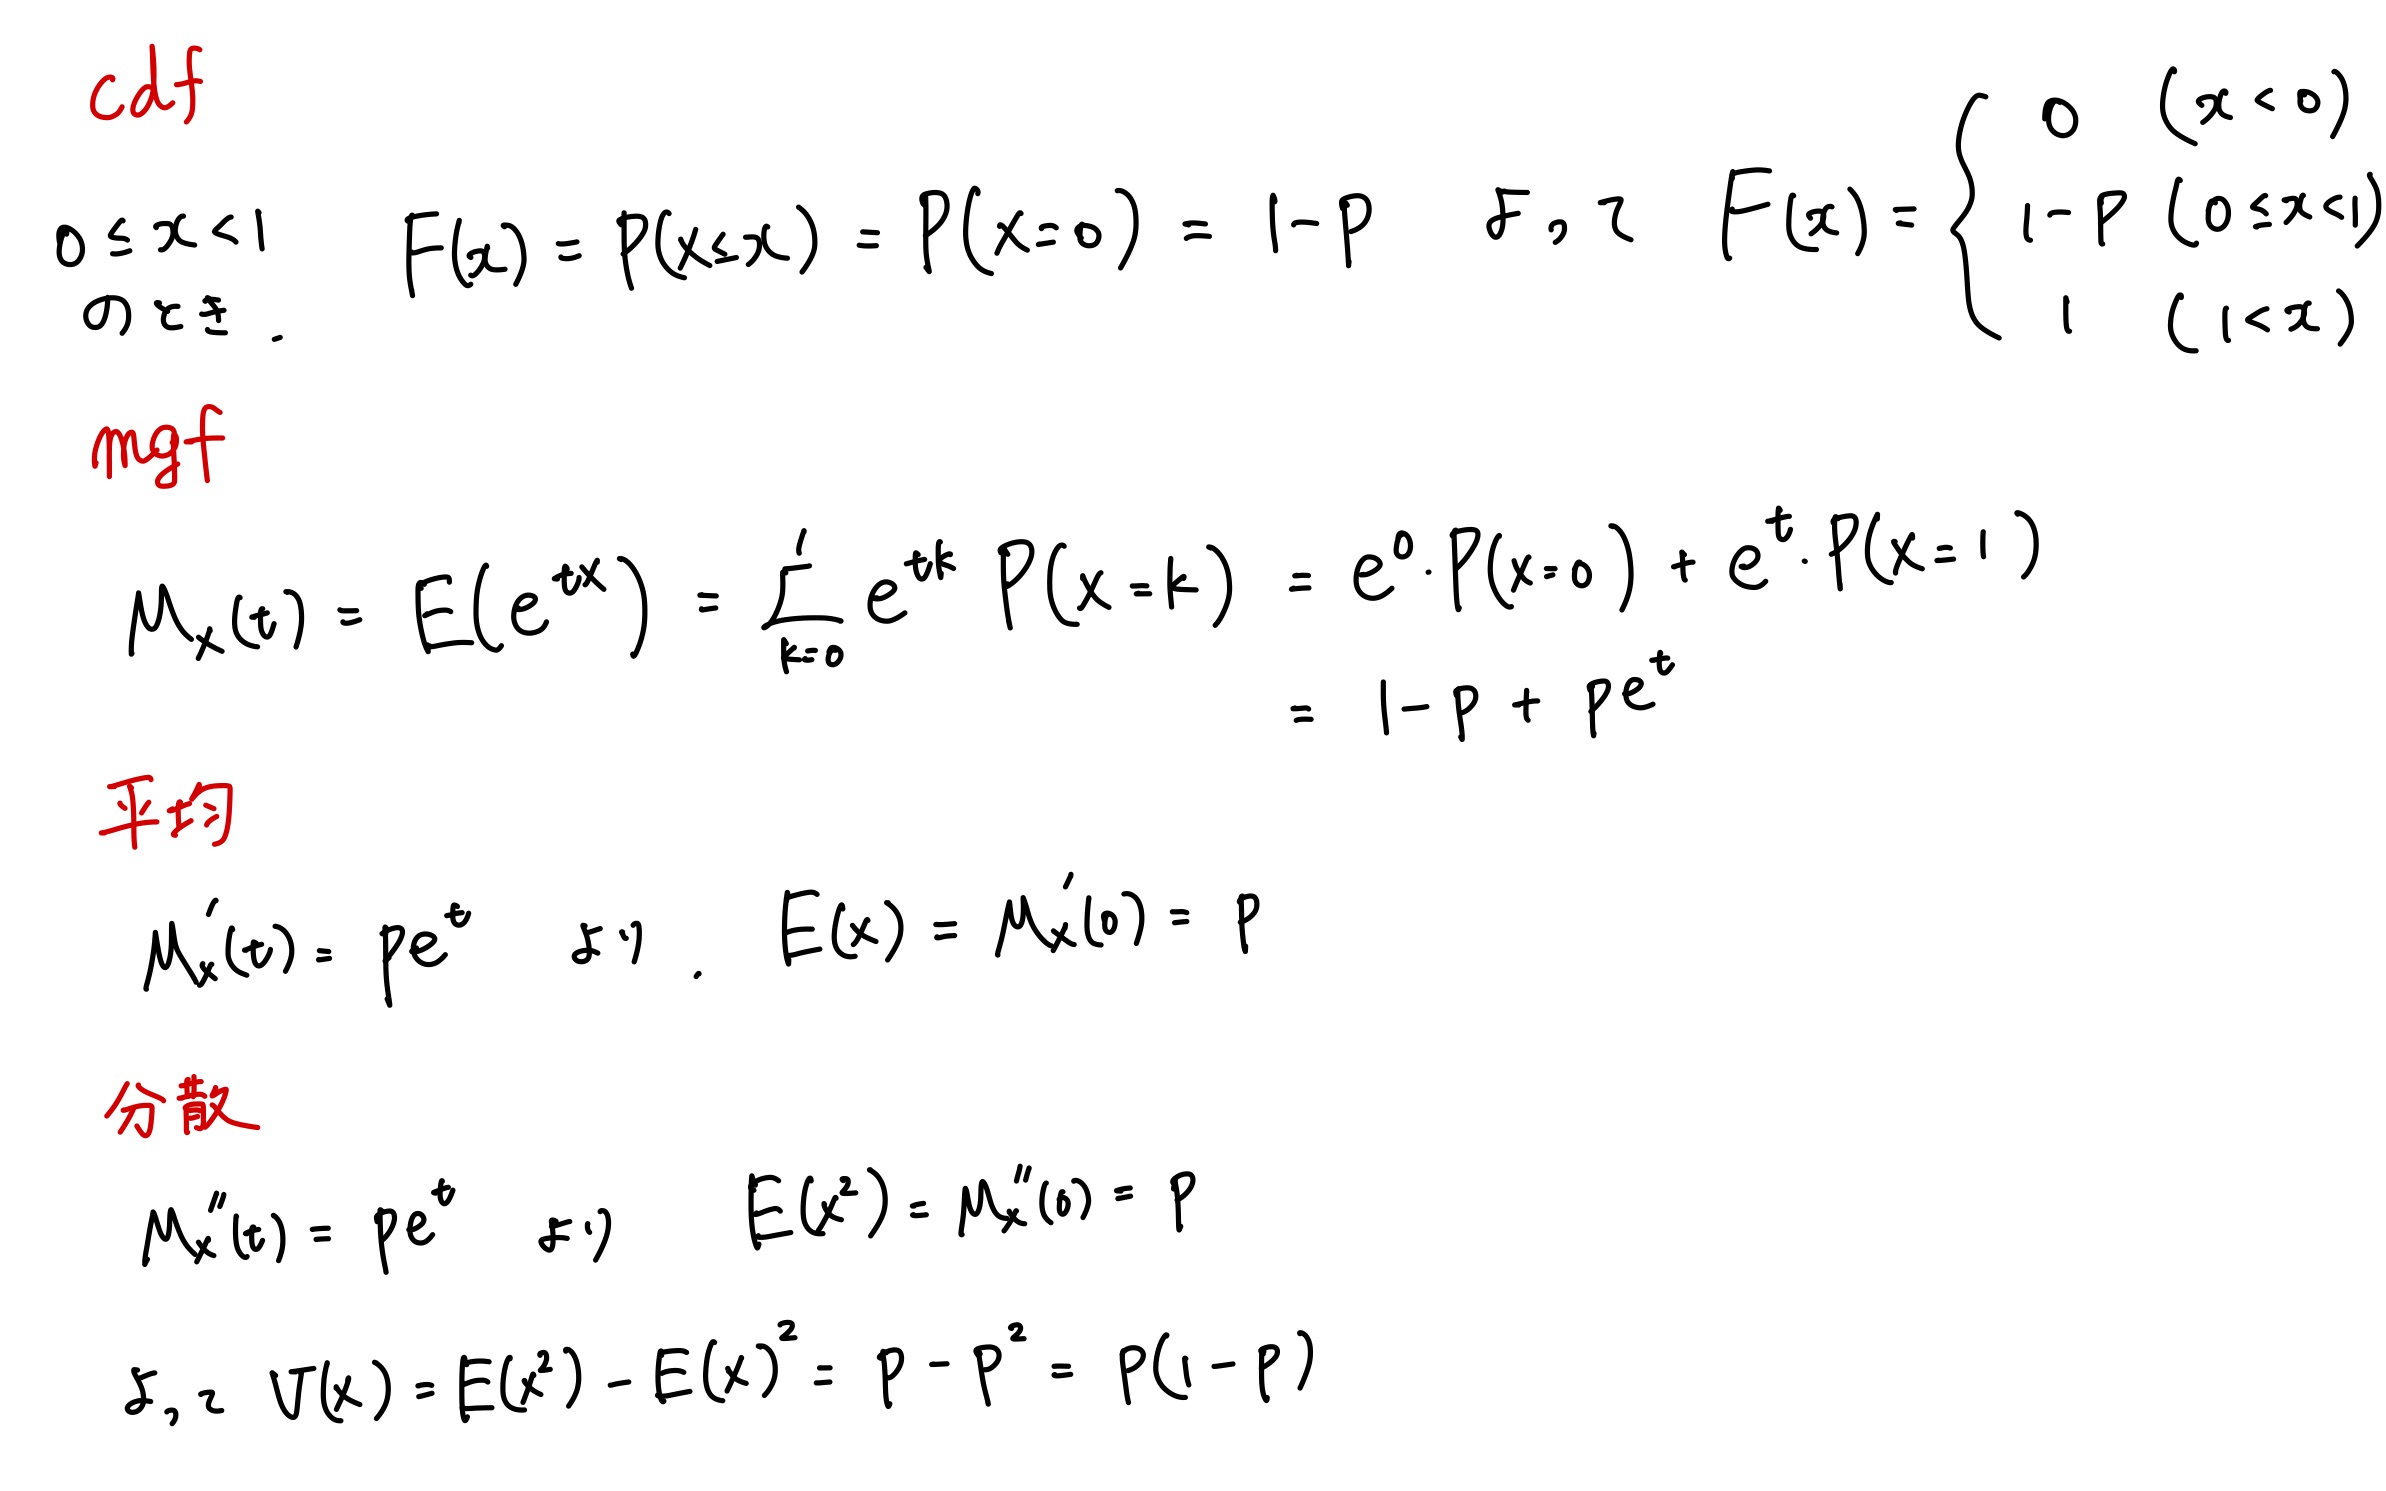 cdf
0≦x<1 のとき. F(x) = P(X≦x) = P(X=0) = 1-p よって F(x) = { 0 (x<0)
1-p (0≦x<1)
1 (1<x)
mgf
M_X(t) = E(e^{tX}) = Σ_{k=0}^{1} e^{tk} P(X=k) = e^0・P(X=0) + e^t・P(X=1)
= 1-p + pe^t
平均
M_X'(t) = pe^t より. E(X) = M_X'(0) = p
分散
M_X''(t) = pe^t より E(X^2) = M_X''(0) = p
よって V(X) = E(X^2) - E(X)^2 = p - p^2 = p(1-p)